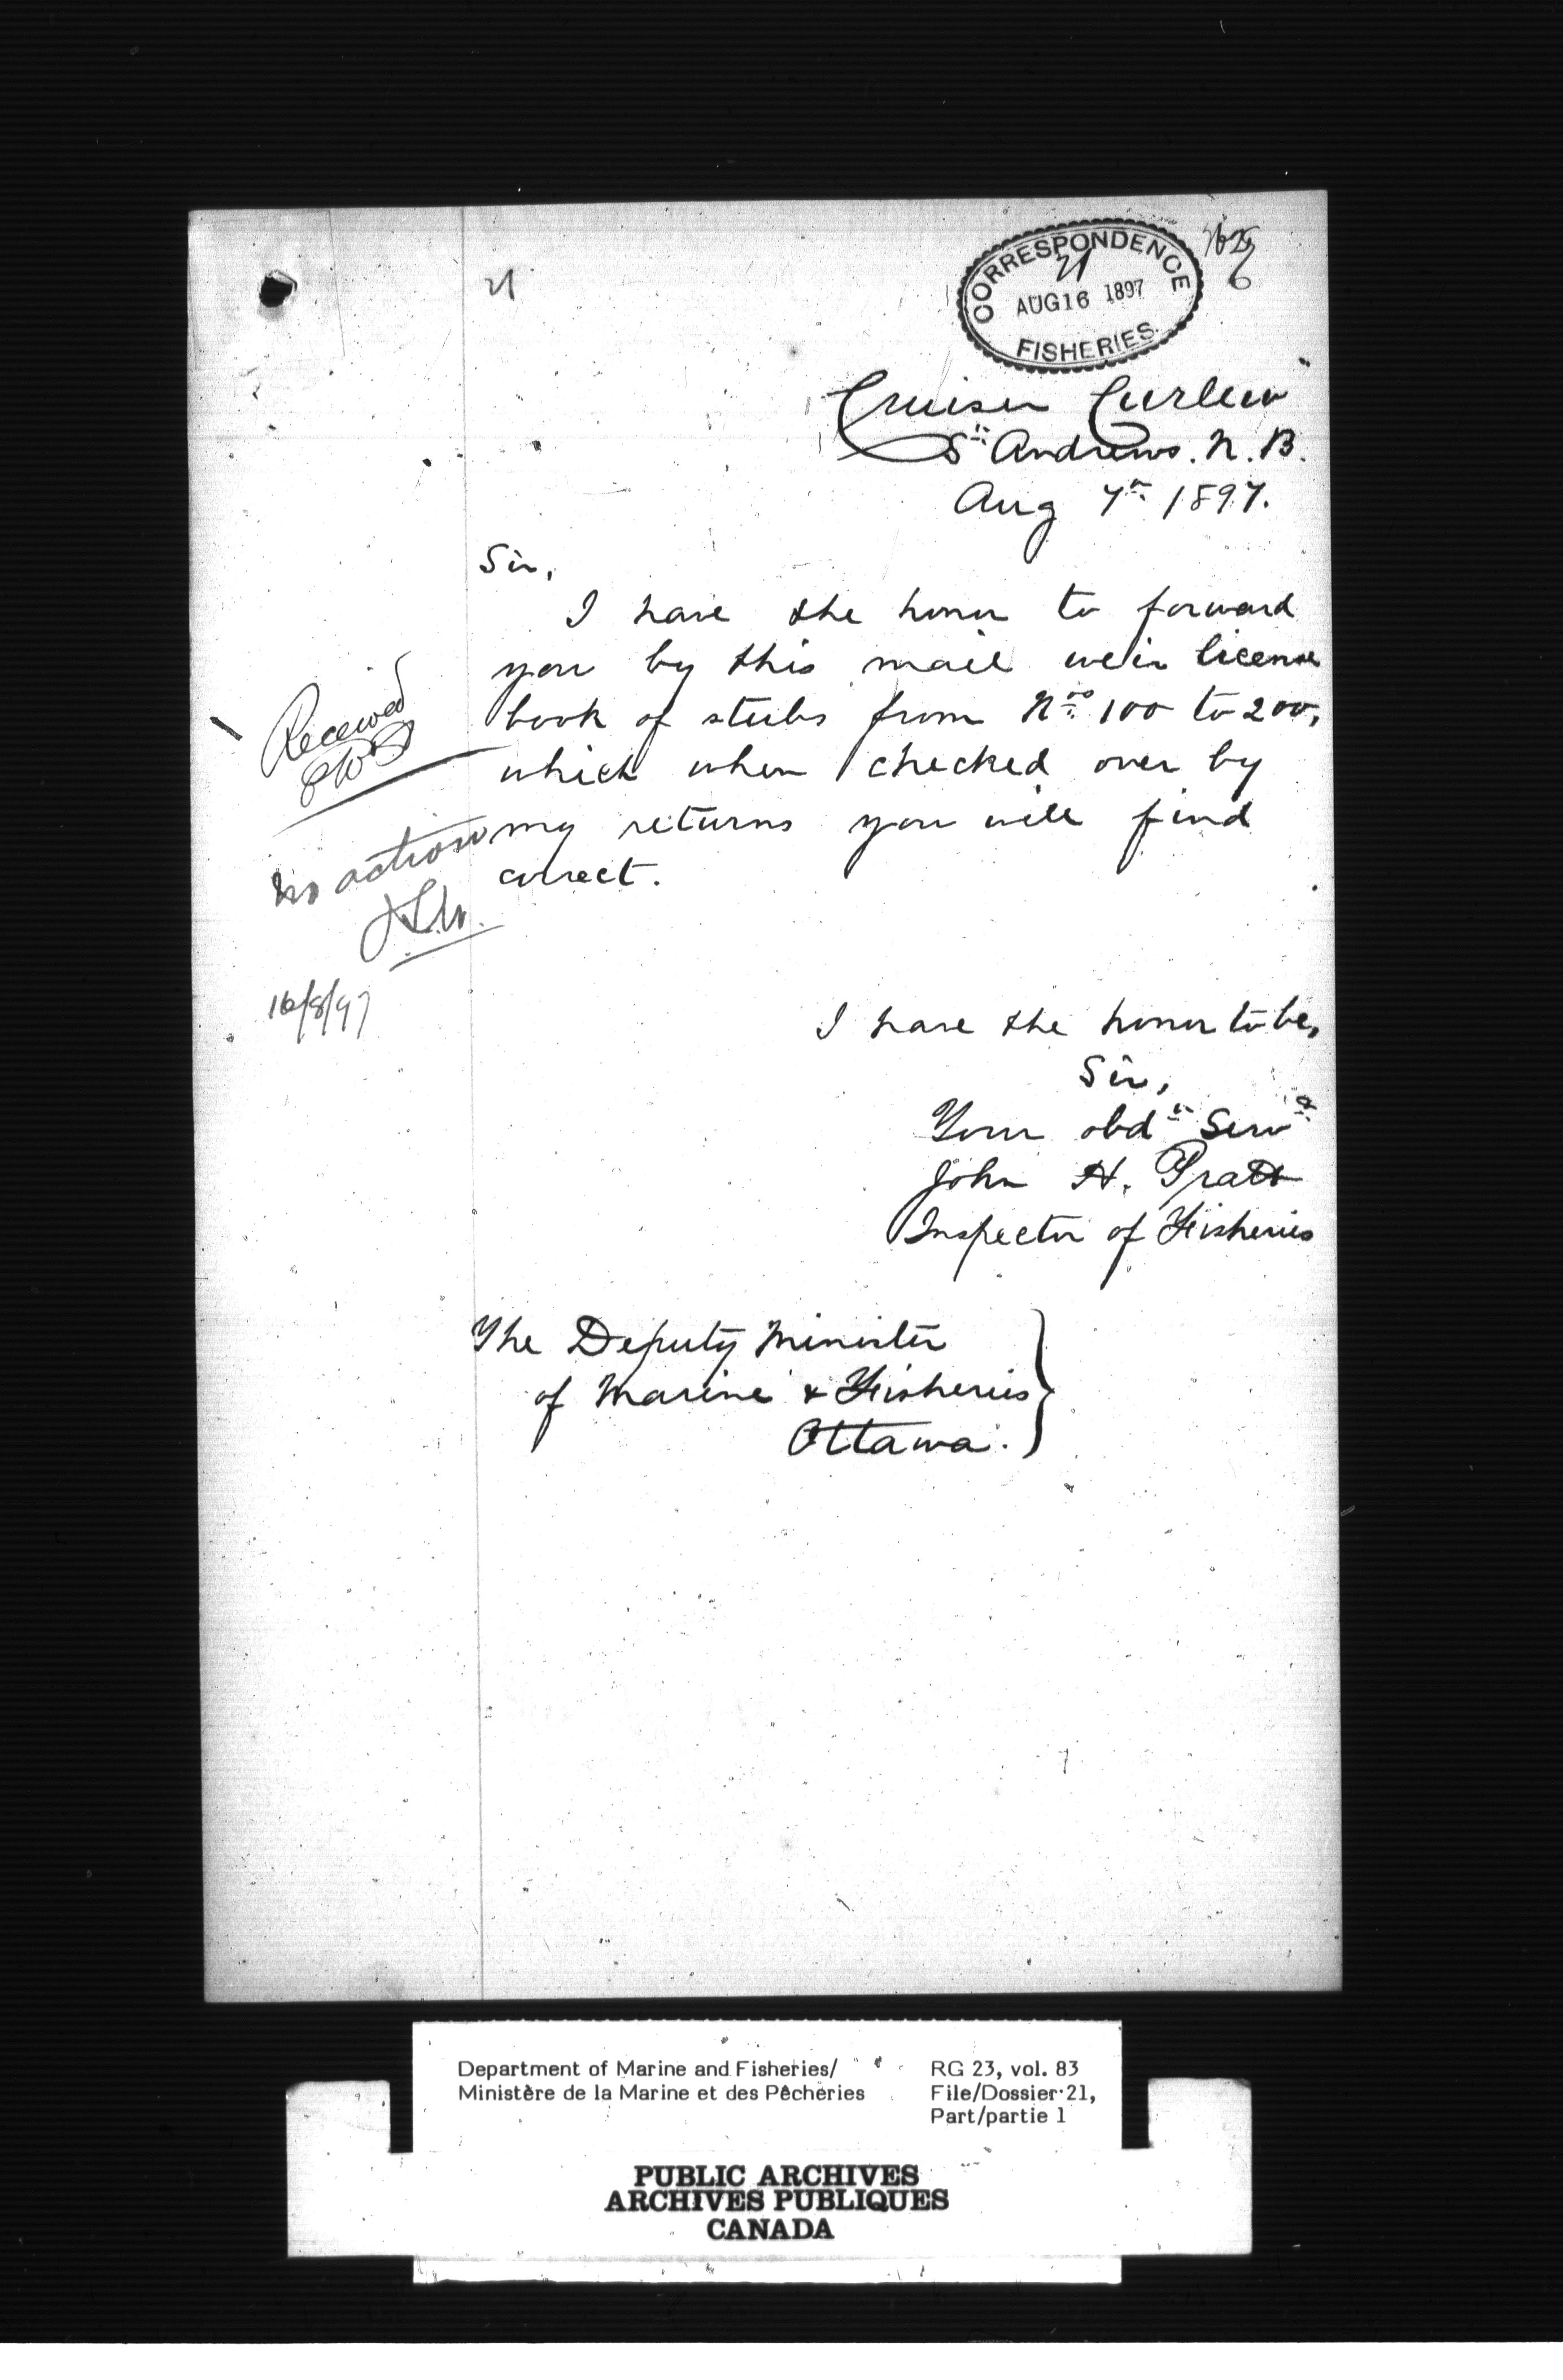 21
CORRESPONDENCE
21
AUG 16 1897
FISHERIES.
Cruiser Curlew"
St Andrews. N. B.
Aug 7th 1897.
Sir,
I have the honor to forward
you by this mail weir license
book of stubs from Nos 100 to 200,
which when checked over by
my returns you will find
correct.
Received
no action
16/8/97
I have the honor to be,
Sir,
Your obdt Servt
John H. Pratt
Inspector of Fisheries
The Deputy Minister
of Marine & Fisheries
Ottawa.
Department of Marine and Fisheries/
Ministère de la Marine et des Pêcheries
RG 23, vol. 83
File/Dossier 21,
Part/partie 1
PUBLIC ARCHIVES
ARCHIVES PUBLIQUES
CANADA